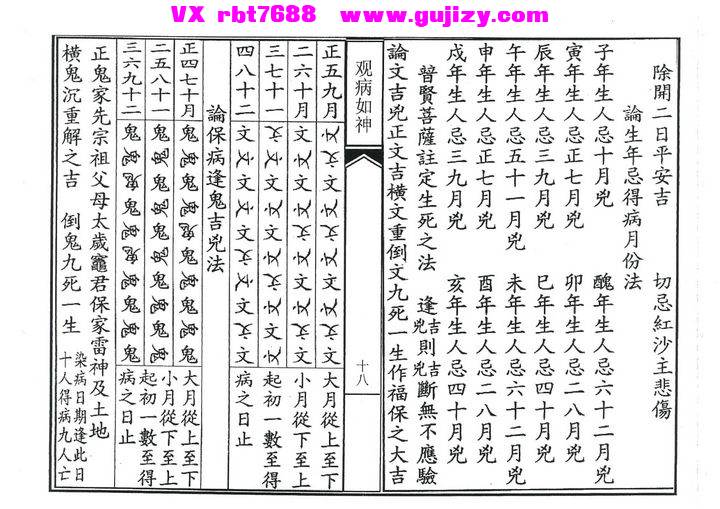 VX rbt7688 www.gujizy.com
除開二日平安吉 切忌紅沙主悲傷
論生年忌得病月份法
子年生人忌十月兇 醜年生人忌六十二月兇
寅年生人忌正七月兇 卯年生人忌二八月兇
辰年生人忌三九月兇 巳年生人忌四十月兇
午年生人忌五十一月兇 未年生人忌六十二月兇
申年生人忌正七月兇 酉年生人忌二八月兇
戌年生人忌三九月兇 亥年生人忌四十月兇
普賢菩薩註定生死之法 逢吉兇則吉兇斷無不應驗
論文吉兇正文吉橫文重倒文九死一生作福保之大吉
观病如神
十八
正五九月 大月從上至下
二六十月 小月從下至上
三七十一 起初一數至得
四八十二 病之日止
論保病逢鬼吉兇法
正四七十月 大月從上至下
二五八十一 小月從下至上
三六九十二 起初一數至得
病之日止
正鬼家先宗祖父母太歲竈君保家雷神及土地
橫鬼沉重解之吉 倒鬼九死一生 染病日期逢此日
十人得病九人亡